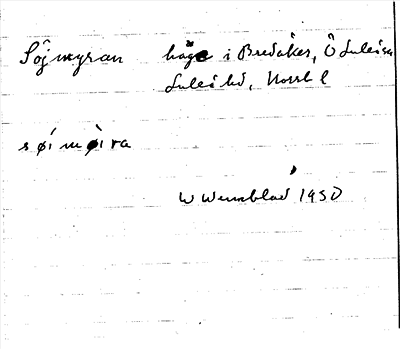 Söjmyran häge i Bredåker, Ö Luleåsn
Luleå ld, Norrb l
søi møi ra
W Wennblad 1950